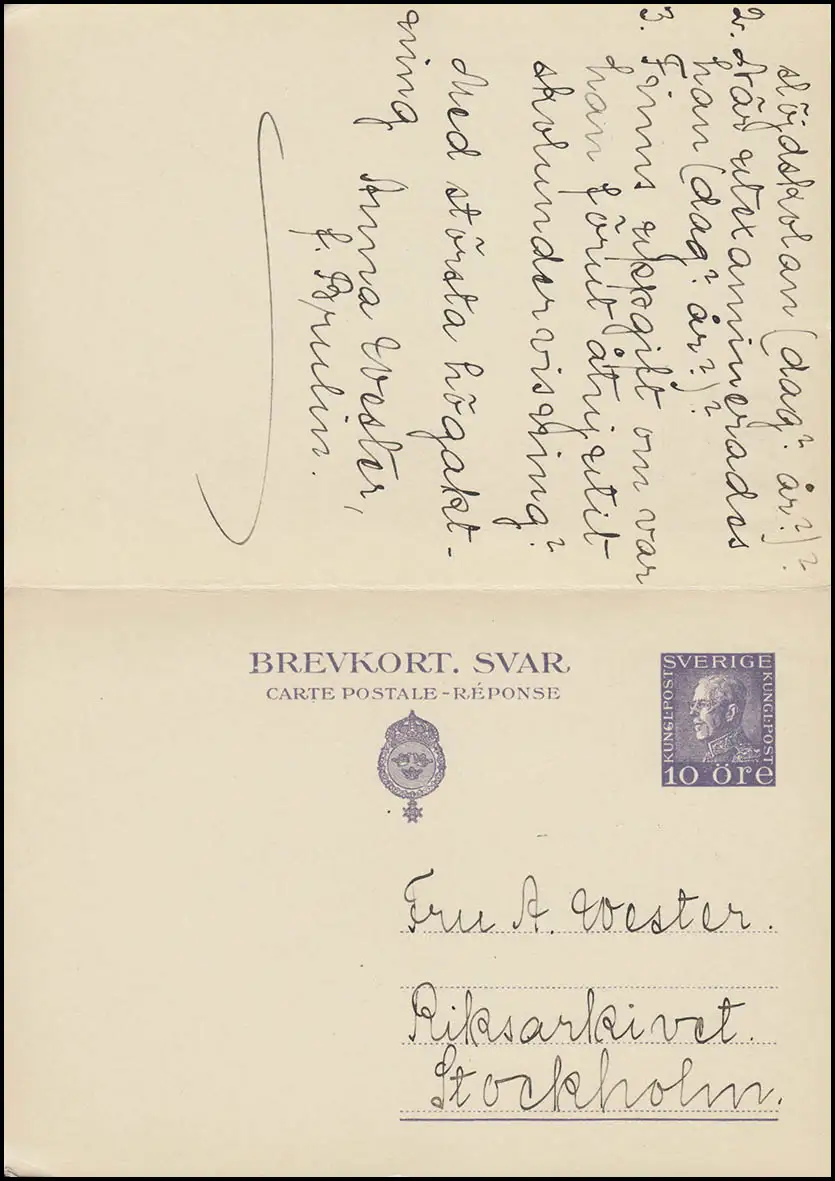 slöjdskolan (dag? år?)?
2. När utexaminerades
han (dag? år?)?
3. Finns uppgift om var
han förut åtnjutit
skolundervisning?
Med största högakt-
ning
Anna Wester,
f. Brulin.
BREVKORT. SVAR
CARTE POSTALE - RÉPONSE
SVERIGE
KUNGL. POST
KUNGL. POST
10 öre
Fru A. Wester.
Riksarkivet.
Stockholm.